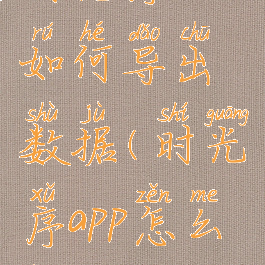 rú hé dǎo chū
如何导出
shù jù shí guāng
数据(时光
xù zěn me
序app怎么